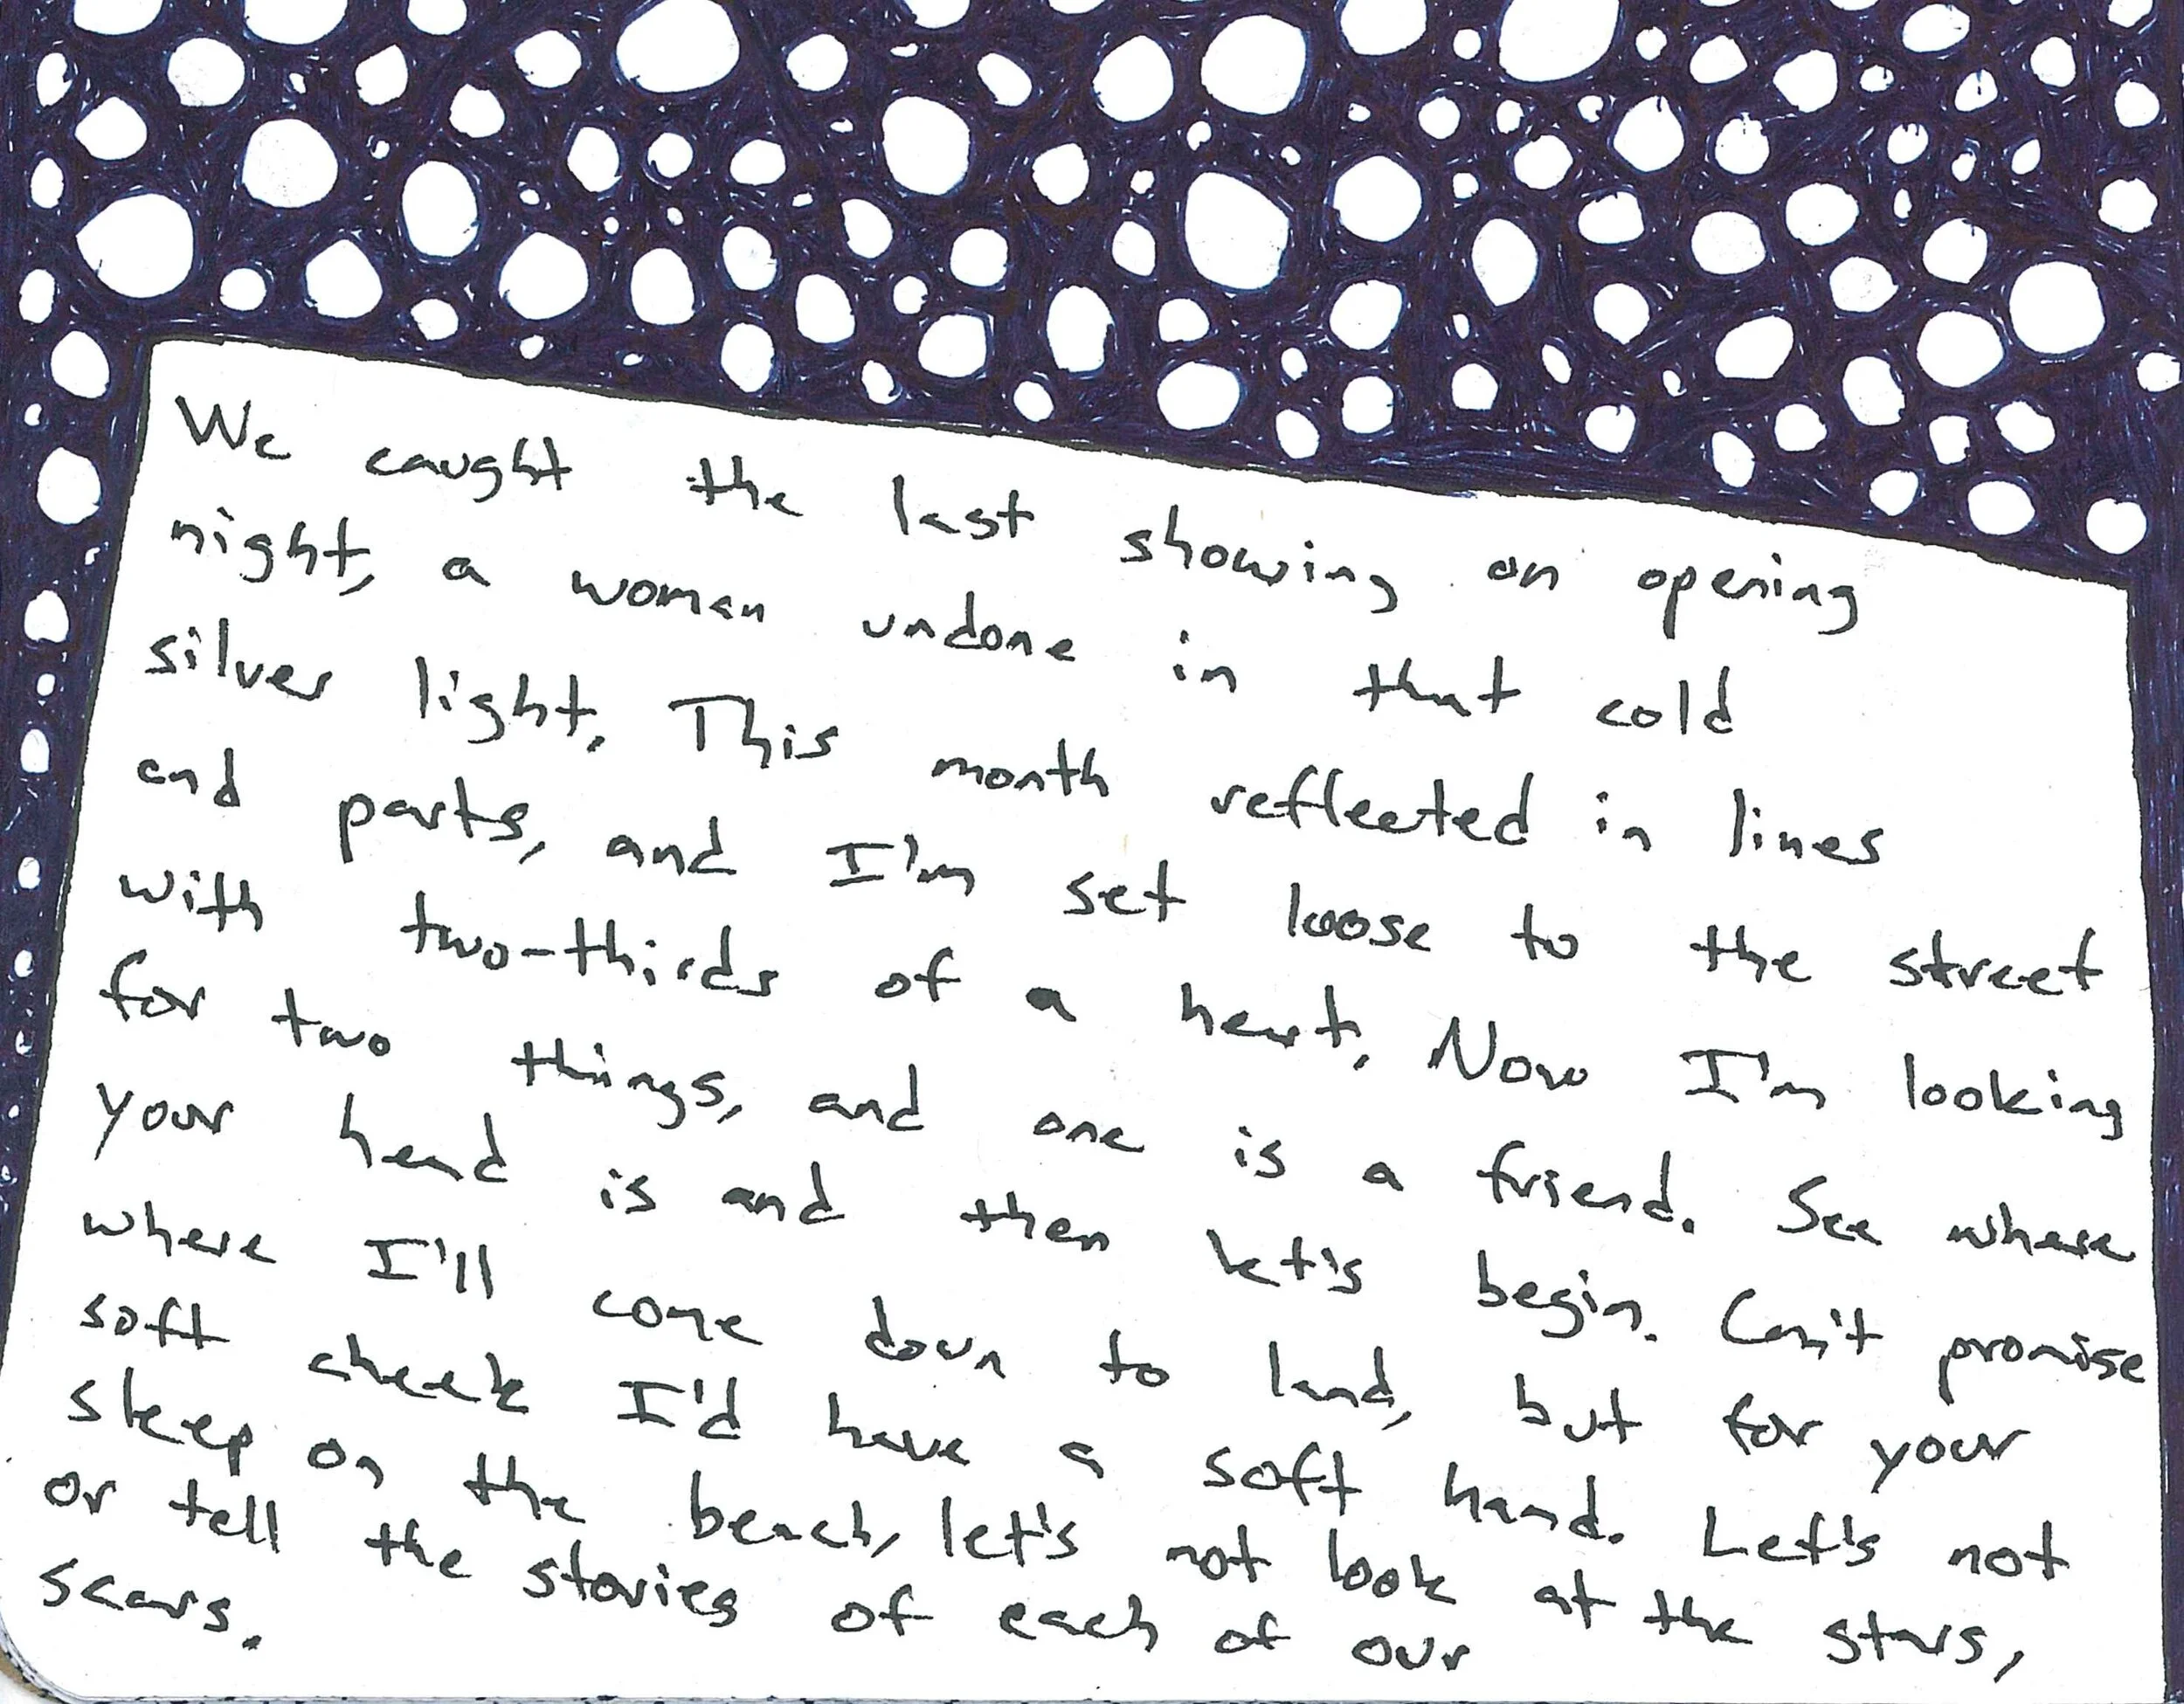 We caught the last showing on opening
night, a woman undone in that cold
silver light. This month reflected in lines
and parts, and I'm set loose to the street
with two-thirds of a heart. Now I'm looking
for two things, and one is a friend. See where
your head is and then let's begin. Can't promise
where I'll come down to land, but for your
soft cheek I'd have a soft hand. Let's not
sleep on the beach, let's not look at the stars,
or tell the stories of each of our
scars.